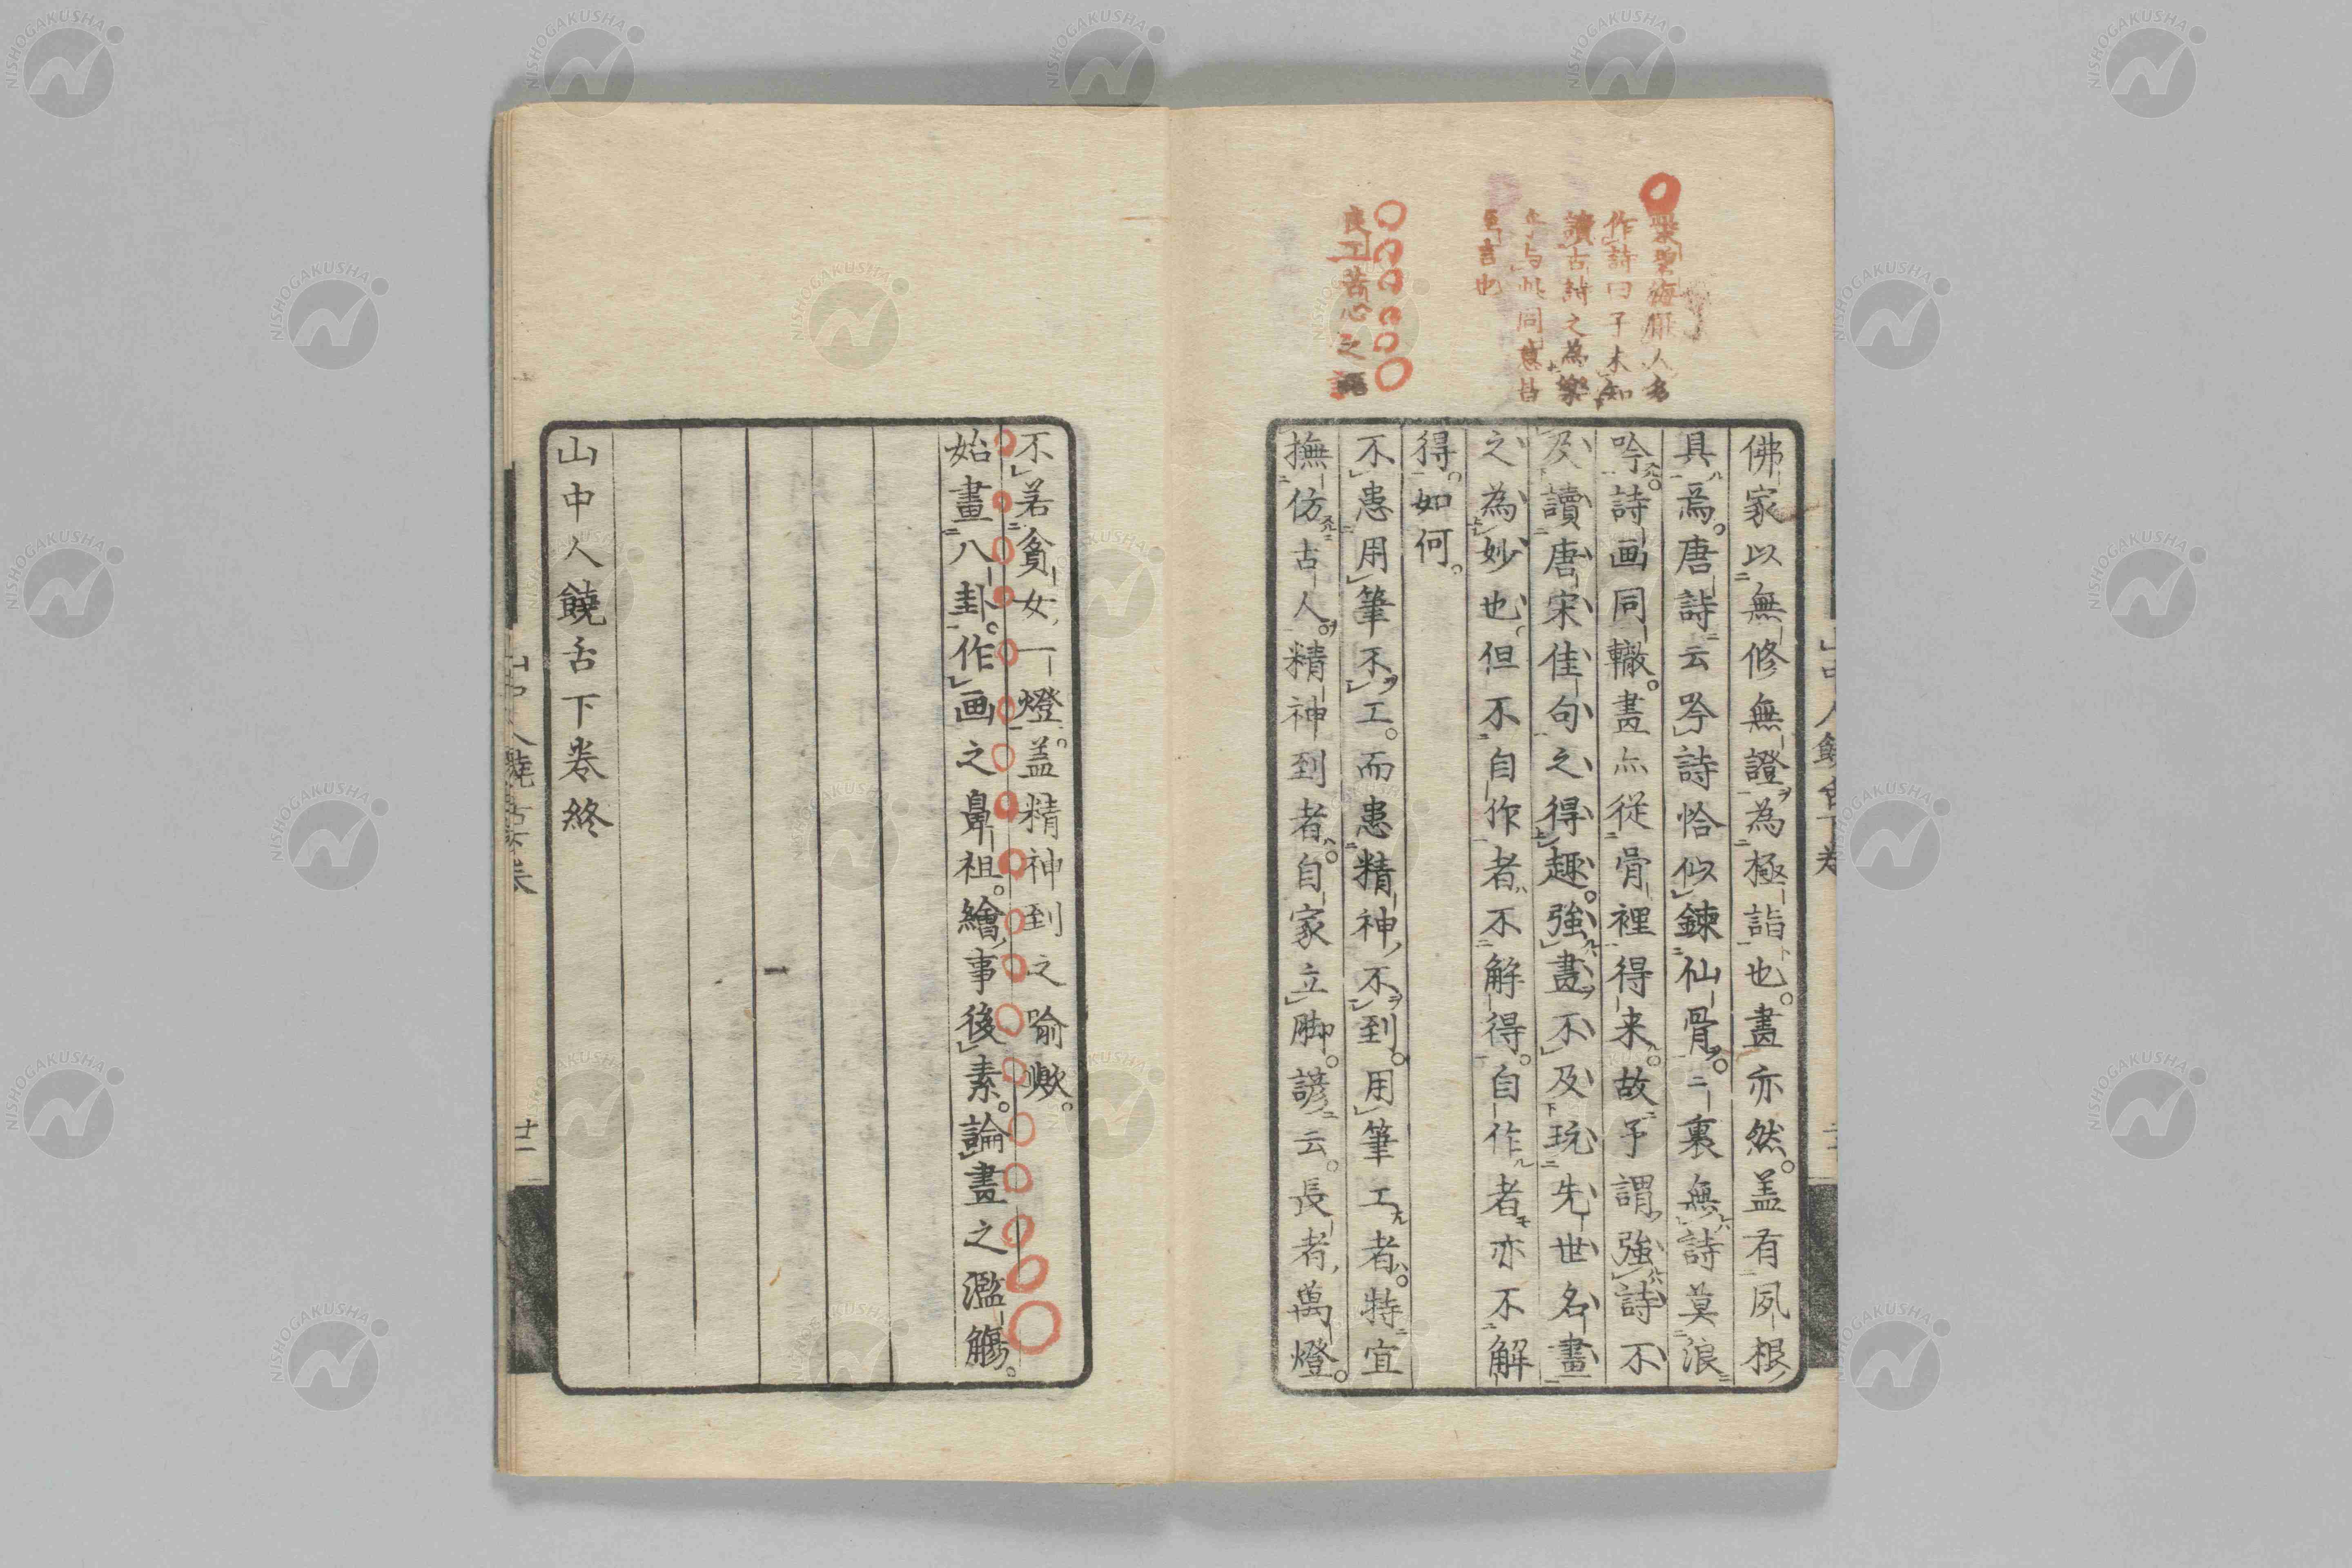 佛家以無修無證為極詣也。畫亦然。盖有夙根
具焉。唐詩云吟詩恰似鍊仙骨。二裏無詩莫浪
吟。詩画同轍。畫亦従骨裡得来。故予謂強詩不
及讀唐宋佳句之得趣。強畫不及玩先世名畫
之為妙也。但不自作者不解得。自作者亦不解
得。如何。
不患用筆不工。而患精神不到。用筆工者。特宜
撫仿古人。精神到者。自家立脚。諺云。長者萬燈。
不若貧女一燈。盖精神到之喻歟。
始畫八卦。作画之鼻祖。繪事後素。論畫之濫觴。
山中人饒舌下卷終
作詩曰予未知
讀古詩之為樂
与此同意
言也
良工苦心之
山中人饒舌下卷
廿二
NISHOGAKUSHA